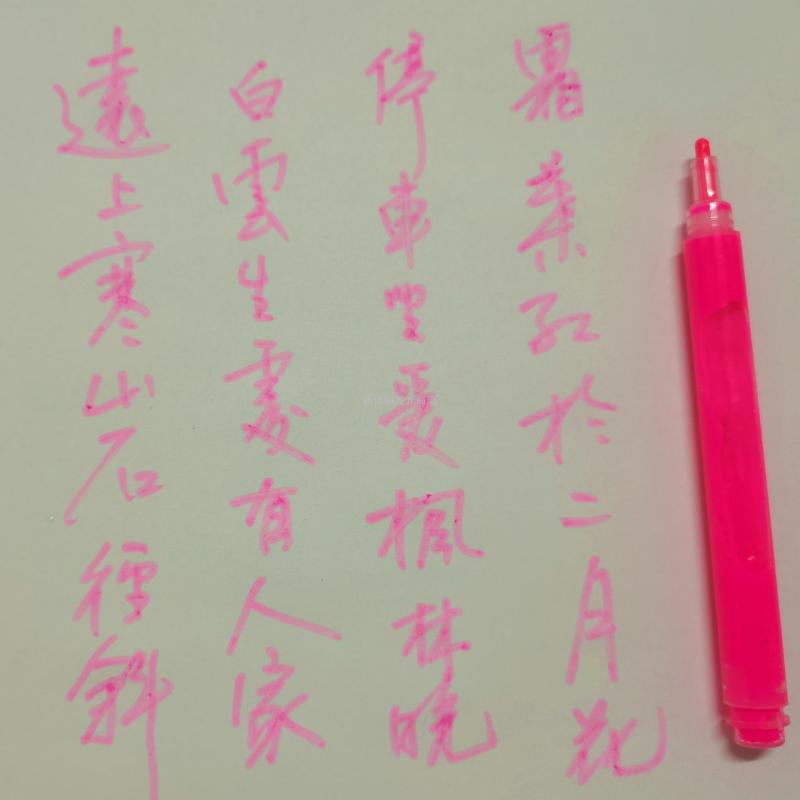 遠上寒山石徑斜
白雲生處有人家
停車坐愛楓林晓
霜葉紅於二月花